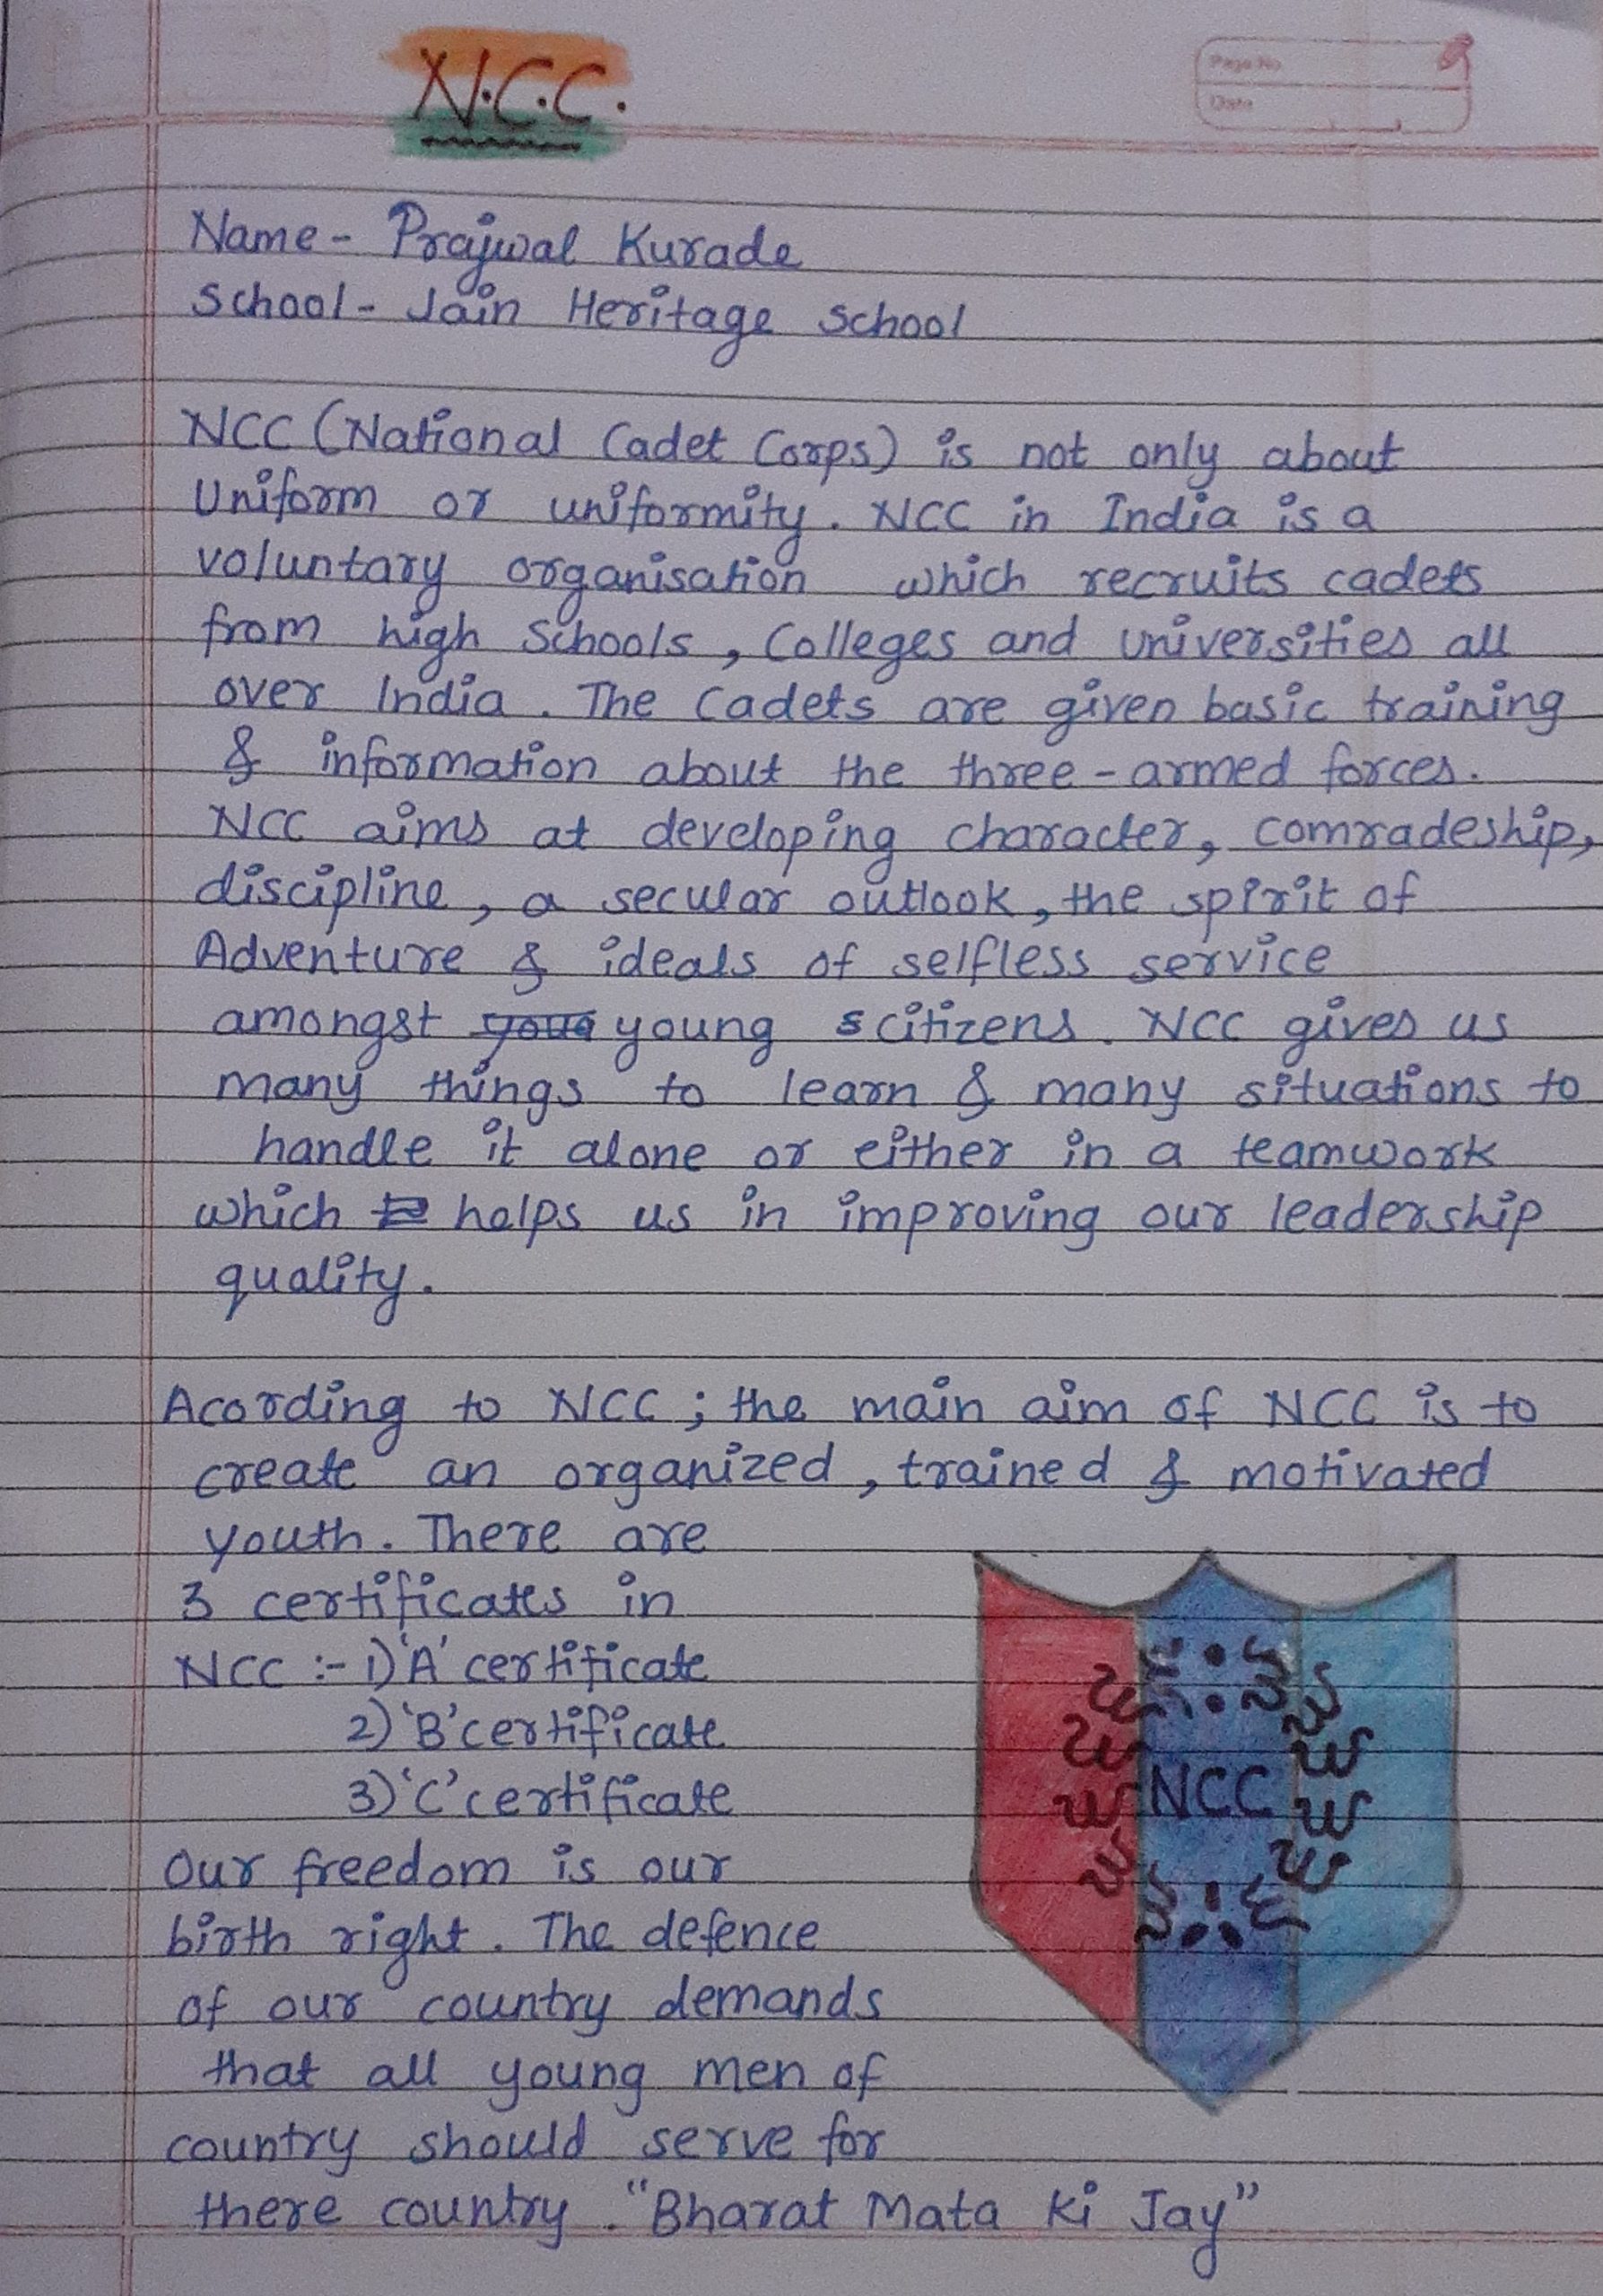 N.C.C.
Page No.
Date
Name - Prajwal Kurade
School - Jain Heritage school
NCC (National Cadet Corps) is not only about
Uniform or uniformity. NCC in India is a
voluntary organisation which recruits cadets
from high Schools, Colleges and universities all
over India. The Cadets are given basic training
& information about the three-armed forces.
NCC aims at developing character, comradeship,
discipline, a secular outlook, the spirit of
Adventure & ideals of selfless service
amongst young citizens. NCC gives us
many things to learn & many situations to
handle it alone or either in a teamwork
which helps us in improving our leadership
quality.
Acording to NCC; the main aim of NCC is to
create an organized, trained & motivated
youth. There are
3 certificates in
NCC :- 1) 'A' certificate
2) 'B' certificate
3) 'C' certificate
NCC
Our freedom is our
birth right. The defence
of our country demands
that all young men of
country should serve for
there country. "Bharat Mata Ki Jay"